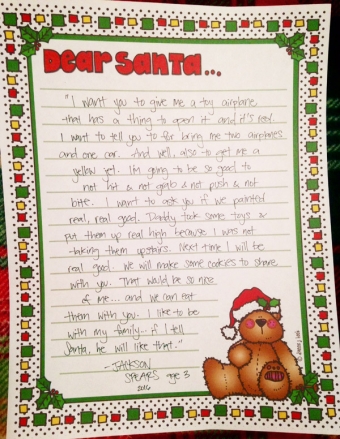 Dear Santa...
"I want you to give me a toy airplane
that has a thing to open it and it's real.
I want to tell you to for bring me two airplanes
and one car. And well, also to get me a
yellow yet. I'm going to be so good to
not hit & not grab & not push & not
bite. I want to ask you if we painted
real, real good. Daddy took some toys &
put them up real high because I was not
taking them upstairs. Next time I will be
real good. We will make some cookies to share
with you. That would be so nice
of me... and we can eat
them with you. I like to be
with my family... if I tell
Santa, he will like that."
- JACKSON
SPEARS age 3
2016